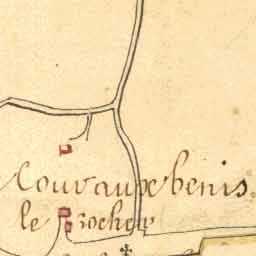 Couraupebenis
le Rocher